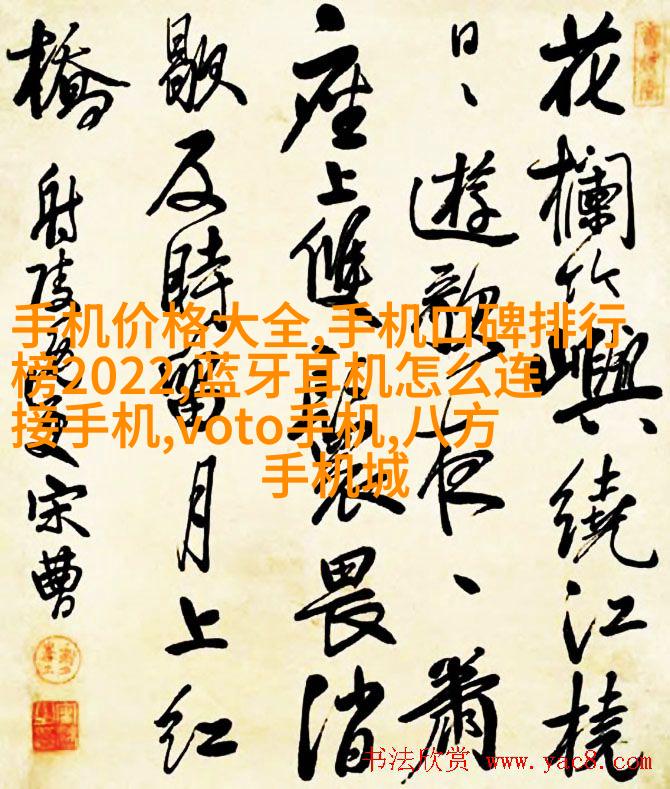 花欄竹嶼繞江橈
日、遊歌夜、蕭
座上雙裳畏消
歇反時月上紅
橋
射陵逸叟宋曹
手机价格大全,手机口碑排行
榜2022,蓝牙耳机怎么连
接手机,voto手机,八方
手机城
书法欣赏 www.yac8.com